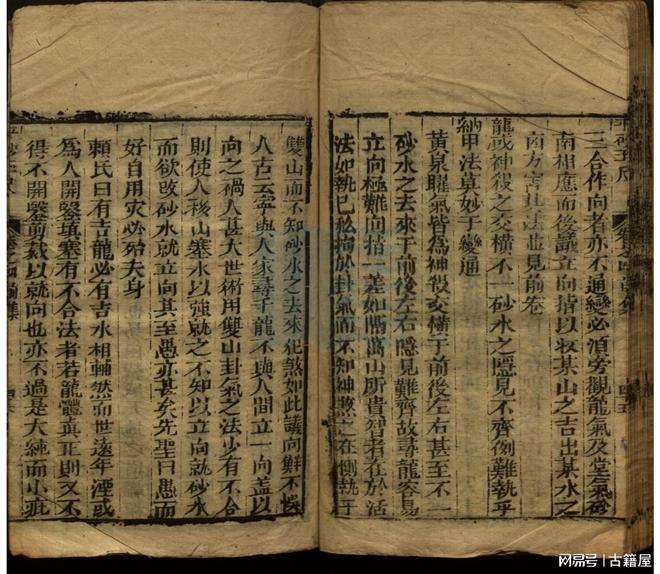 三合作向者亦不通變必須旁觀龍氣及堂氣砂
南相應而後議立向指以收某山之吉出某水之
凶方宮其法並見前卷
龍或神殺之交橫不一砂水之隱見不齊例難執乎
納甲法莫妙于變通
黃泉曜氣皆為神殺交橫于前後左右甚至不一
砂水之去來于前後左右隱見難齊故尋龍容易
立向極難向指一差如隔萬山所貴智者在於活
法如執已私拘於卦氣而不知神煞之在側執于
雙山而不知砂水之去來犯煞如此議向鮮不悞
人古云寧與人家尋千龍不與人間立一向蓋以
向之禍人甚大世術用雙山卦氣之法少有不合
則使人移山塞水以強就之不知以立向就砂水
而欲改砂水就立向其至愚亦甚矣先聖曰愚而
好自用灾必殆夫身
賴氏曰有吉龍必有吉水相輔然而世遠年湮或
為人開鑿填塞有不合法者若龍體真正則又不
得不開鑿剪裁以就向也亦不過是大純而小疵
网易号 | 古籍屋